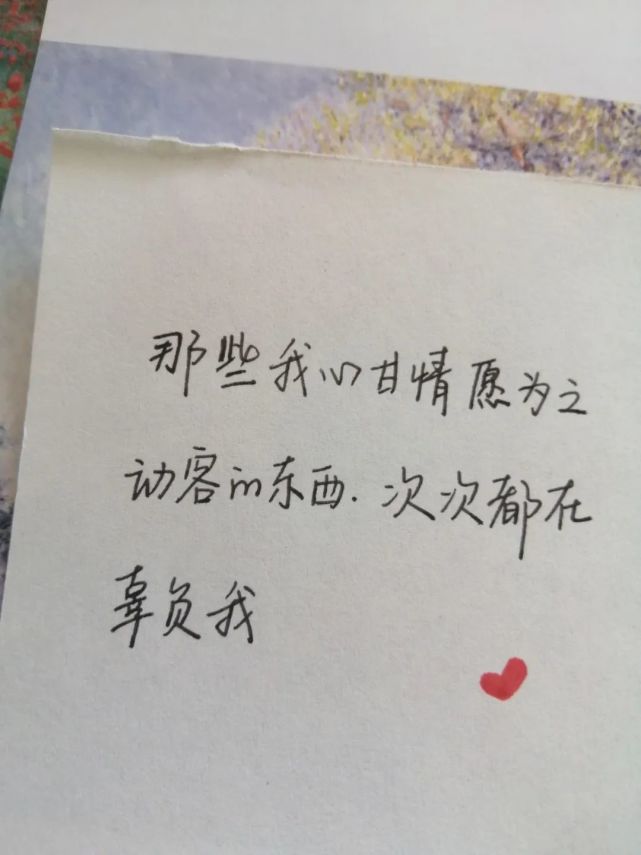 那些我心甘情愿为之
动客的东西.次次都在
辜负我